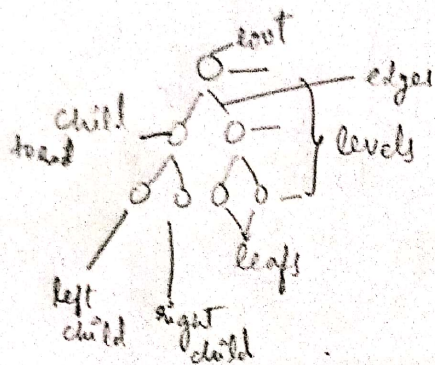 root
edges
child
levels
leafs
left
child
right
child